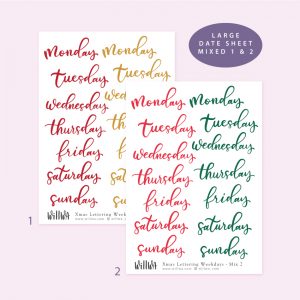 LARGE
DATE SHEET
MIXED 1 & 2
monday monday
tuesday tuesday
wednesday
thursday
friday
saturday
sunday
willwa
Xmas Lettering Weekdays
1
monday monday
tuesday tuesday
wednesday wednesday
thursday thursday
friday friday
saturday saturday
sunday sunday
willwa
Xmas Lettering Weekdays - Mix 2
2